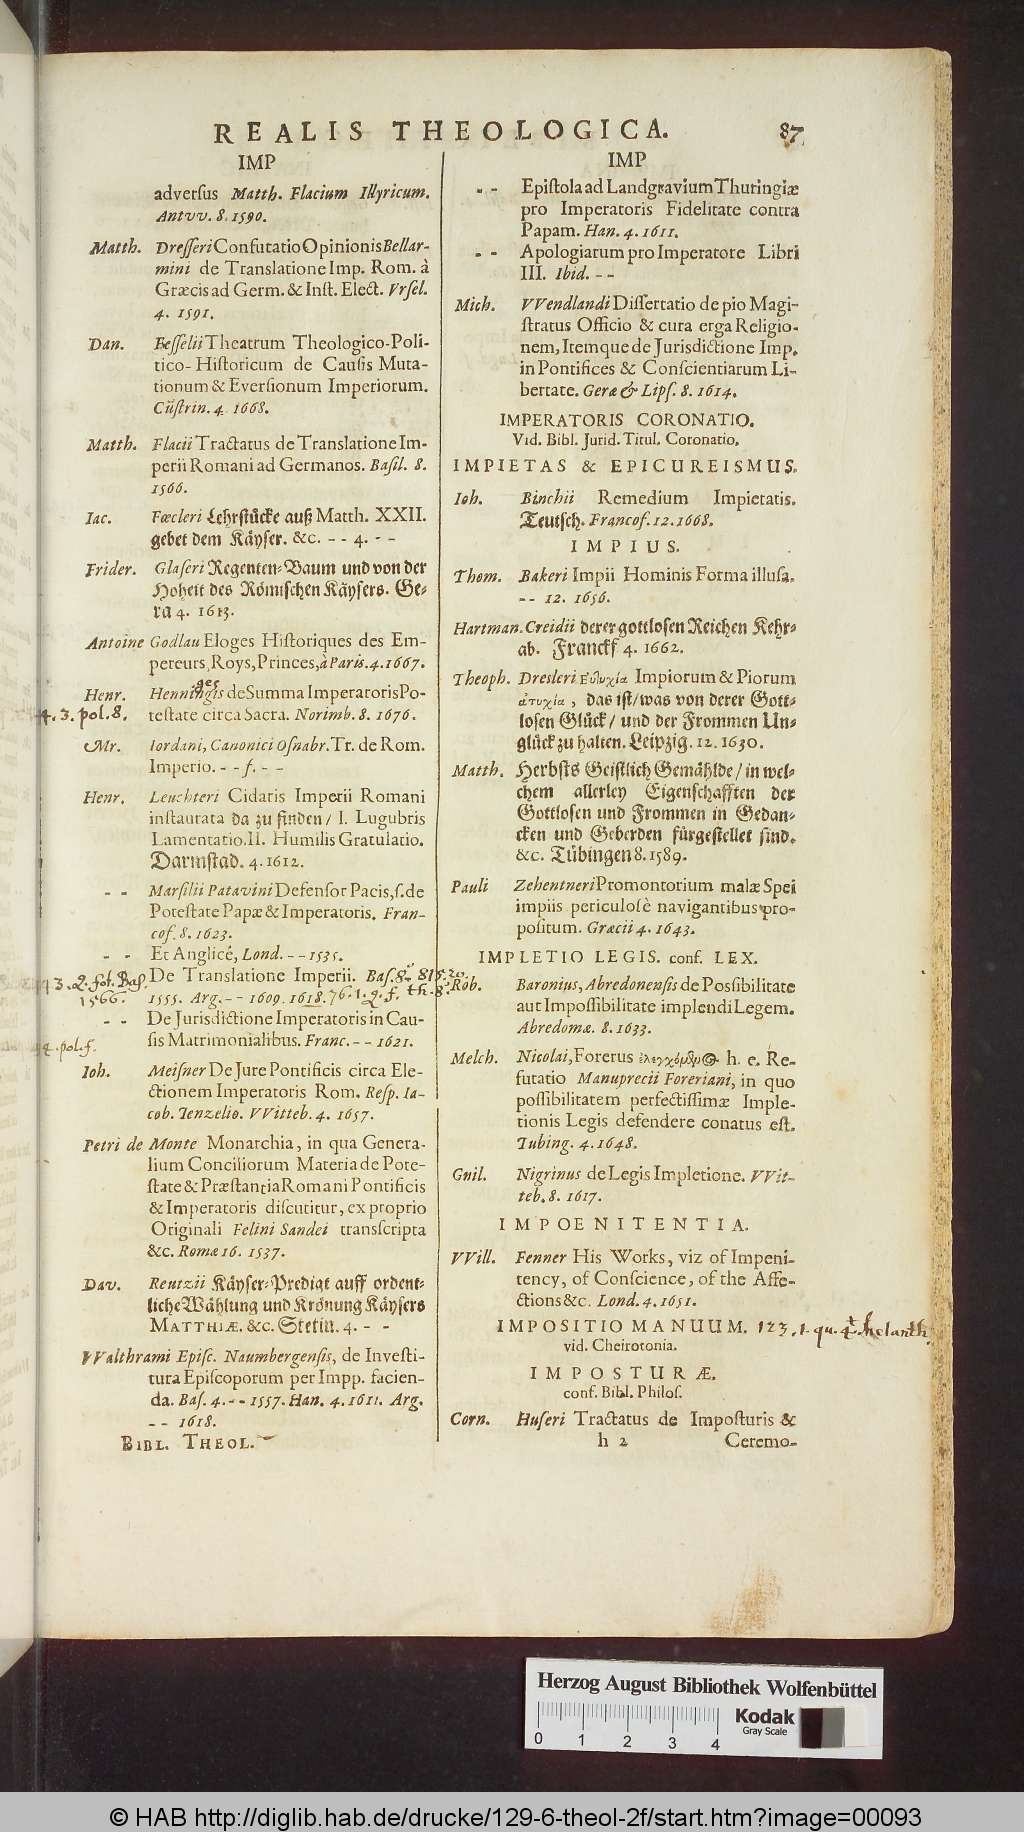 REALIS THEOLOGICA. 87
IMP
adversus Matth. Flacium Illyricum.
Antvv. 8. 1590.
Matth. Dresseri Confutatio Opinionis Bellar-
mini de Translatione Imp. Rom. à
Græcis ad Germ. & Inst. Elect. Ursel.
4. 1591.
Dan. Besselii Theatrum Theologico-Poli-
tico-Historicum de Causis Muta-
tionum & Eversionum Imperiorum.
Cüstrin. 4. 1668.
Matth. Flacii Tractatus de Translatione Im-
perii Romani ad Germanos. Basil. 8.
1566.
Iac. Fœcleri Lehrstücke auß Matth. XXII.
gebet dem Käyser. &c. - - 4. - -
Frider. Glaseri Regenten-Baum und von der
Hoheit des Römischen Käysers. Ge-
ra 4. 1613.
Antoine Godlau Eloges Historiques des Em-
pereurs, Roys, Princes, à Paris. 4. 1667.
Henr. Henningis de Summa Imperatoris Po-
ges
4. 3. pol. 8. testate circa Sacra. Norimb. 8. 1676.
Mr. Iordani, Canonici Osnabr. Tr. de Rom.
Imperio. - - f. - -
Henr. Leuchteri Cidaris Imperii Romani
instaurata da zu finden / I. Lugubris
Lamentatio. II. Humilis Gratulatio.
Darmstad. 4. 1612.
- - Marsilii Patavini Defensor Pacis, s. de
Potestate Papæ & Imperatoris. Fran-
cof. 8. 1623.
- - Et Anglicé, Lond. - - 1535.
3. 2. fol. Bas. De Translatione Imperii. Bas. 8.
1566. 1555. Arg. - - 1609. 1618. 76. 1. q. f. th. 8.
- - De Jurisdictione Imperatoris in Cau-
4. pol. f. sis Matrimonialibus. Franc. - - 1621.
Ioh. Meisner De Jure Pontificis circa Ele-
ctionem Imperatoris Rom. Resp. Ia-
cob. Tenzelio. VVitteb. 4. 1657.
Petri de Monte Monarchia, in qua Genera-
lium Conciliorum Materia de Pote-
state & Præstantia Romani Pontificis
& Imperatoris discutitur, ex proprio
Originali Felini Sandei transscripta
&c. Romæ 16. 1537.
Dav. Reutzii Käyser-Predigt auff ordent-
liche Wählung und Krönung Käysers
MATTHIÆ. &c. Stetin. 4. - -
VValthrami Episc. Naumbergensis, de Investi-
tura Episcoporum per Impp. facien-
da. Bas. 4. - - 1557. Han. 4. 1611. Arg.
- - 1618.
BIBL. THEOL.
IMP
- - Epistola ad Landgravium Thuringiæ
pro Imperatoris Fidelitate contra
Papam. Han. 4. 1611.
- - Apologiarum pro Imperatore Libri
III. Ibid. - -
Mich. VVendlandi Dissertatio de pio Magi-
stratus Officio & cura erga Religio-
nem, Itemque de Jurisdictione Imp.
in Pontifices & Conscientiarum Li-
bertate. Geræ & Lips. 8. 1614.
IMPERATORIS CORONATIO.
Vid. Bibl. Jurid. Titul. Coronatio.
IMPIETAS & EPICUREISMUS.
Ioh. Binchii Remedium Impietatis.
Teutsch. Francof. 12. 1668.
IMPIUS.
Thom. Bakeri Impii Hominis Forma illusa.
- - 12. 1656.
Hartman. Creidii derer gottlosen Reichen Kehr-
ab. Franckf 4. 1662.
Theoph. Dresleri Εὐτυχία Impiorum & Piorum
ἀτυχία, das ist / was von derer Gott-
losen Glück / und der Frommen Un-
glück zu halten. Leipzig. 12. 1630.
Matth. Herbsts Geistlich Gemählde / in wel-
chem allerley Eigenschafften der
Gottlosen und Frommen in Gedan-
cken und Geberden fürgestellet sind.
&c. Tübingen 8. 1589.
Pauli Zehentneri Promontorium malæ Spei
impiis periculosè navigantibus pro-
positum. Græcii 4. 1643.
IMPLETIO LEGIS. conf. LEX.
Rob. Baronius, Abredonensis de Possibilitate
aut Impossibilitate implendi Legem.
Abredomæ. 8. 1633.
Melch. Nicolai, Forerus h. e. Re-
futatio Manuprecii Foreriani, in quo
possibilitatem perfectissimæ Imple-
tionis Legis defendere conatus est.
Tubing. 4. 1648.
Guil. Nigrinus de Legis Impletione. VVit-
teb. 8. 1617.
IMPOENITENTIA.
VVill. Fenner His Works, viz of Impeni-
tency, of Conscience, of the Affe-
ctions &c. Lond. 4. 1651.
IMPOSITIO MANUUM. 123. 1. qu. 4t. helanth.
vid. Cheirotonia.
IMPOSTURÆ.
conf. Bibl. Philos.
Corn. Huseri Tractatus de Imposturis &
h 2 Ceremo-
Herzog August Bibliothek Wolfenbüttel
0 1 2 3 4
Kodak
Gray Scale
© HAB http://diglib.hab.de/drucke/129-6-theol-2f/start.htm?image=00093